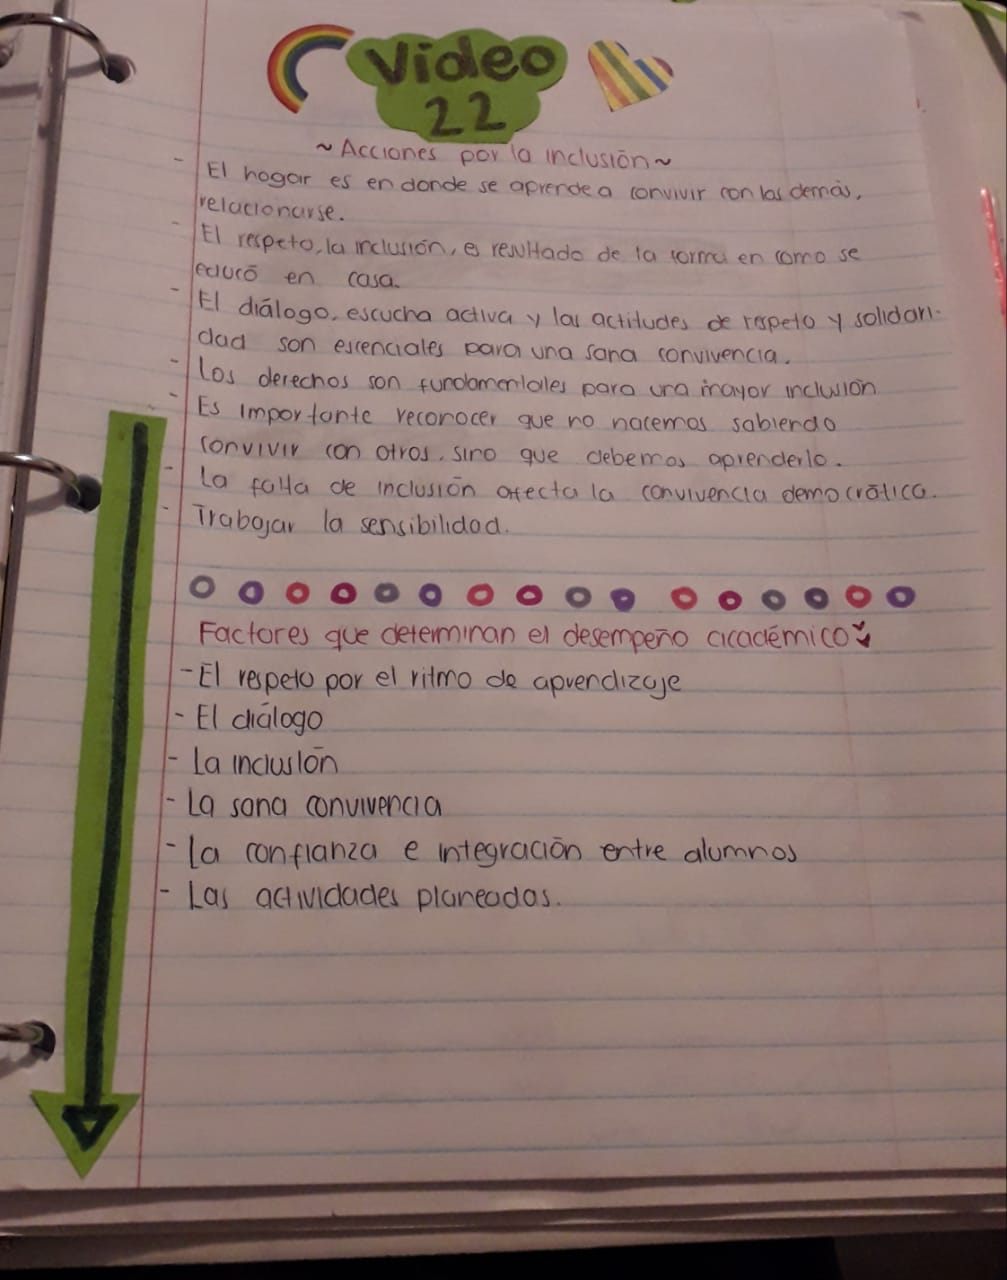 Video
22
~Acciones por la inclusión~
- El hogar es en donde se aprende a convivir con los demás,
relacionarse.
- El respeto, la inclusión, es resultado de la forma en como se
educó en casa.
- El diálogo, escucha activa y las actitudes de respeto y solidari-
dad son escenciales para una sana convivencia.
- Los derechos son fundamentales para una mayor inclusión
- Es importante reconocer que no nacemos sabiendo
convivir con otros, sino que debemos aprenderlo.
- La falta de inclusión afecta la convivencia democrática.
- Trabajar la sensibilidad.
Factores que determinan el desempeño académico
- El respeto por el ritmo de aprendizaje
- El diálogo
- La inclusión
- La sana convivencia
- La confianza e integración entre alumnos
- Las actividades planeadas.